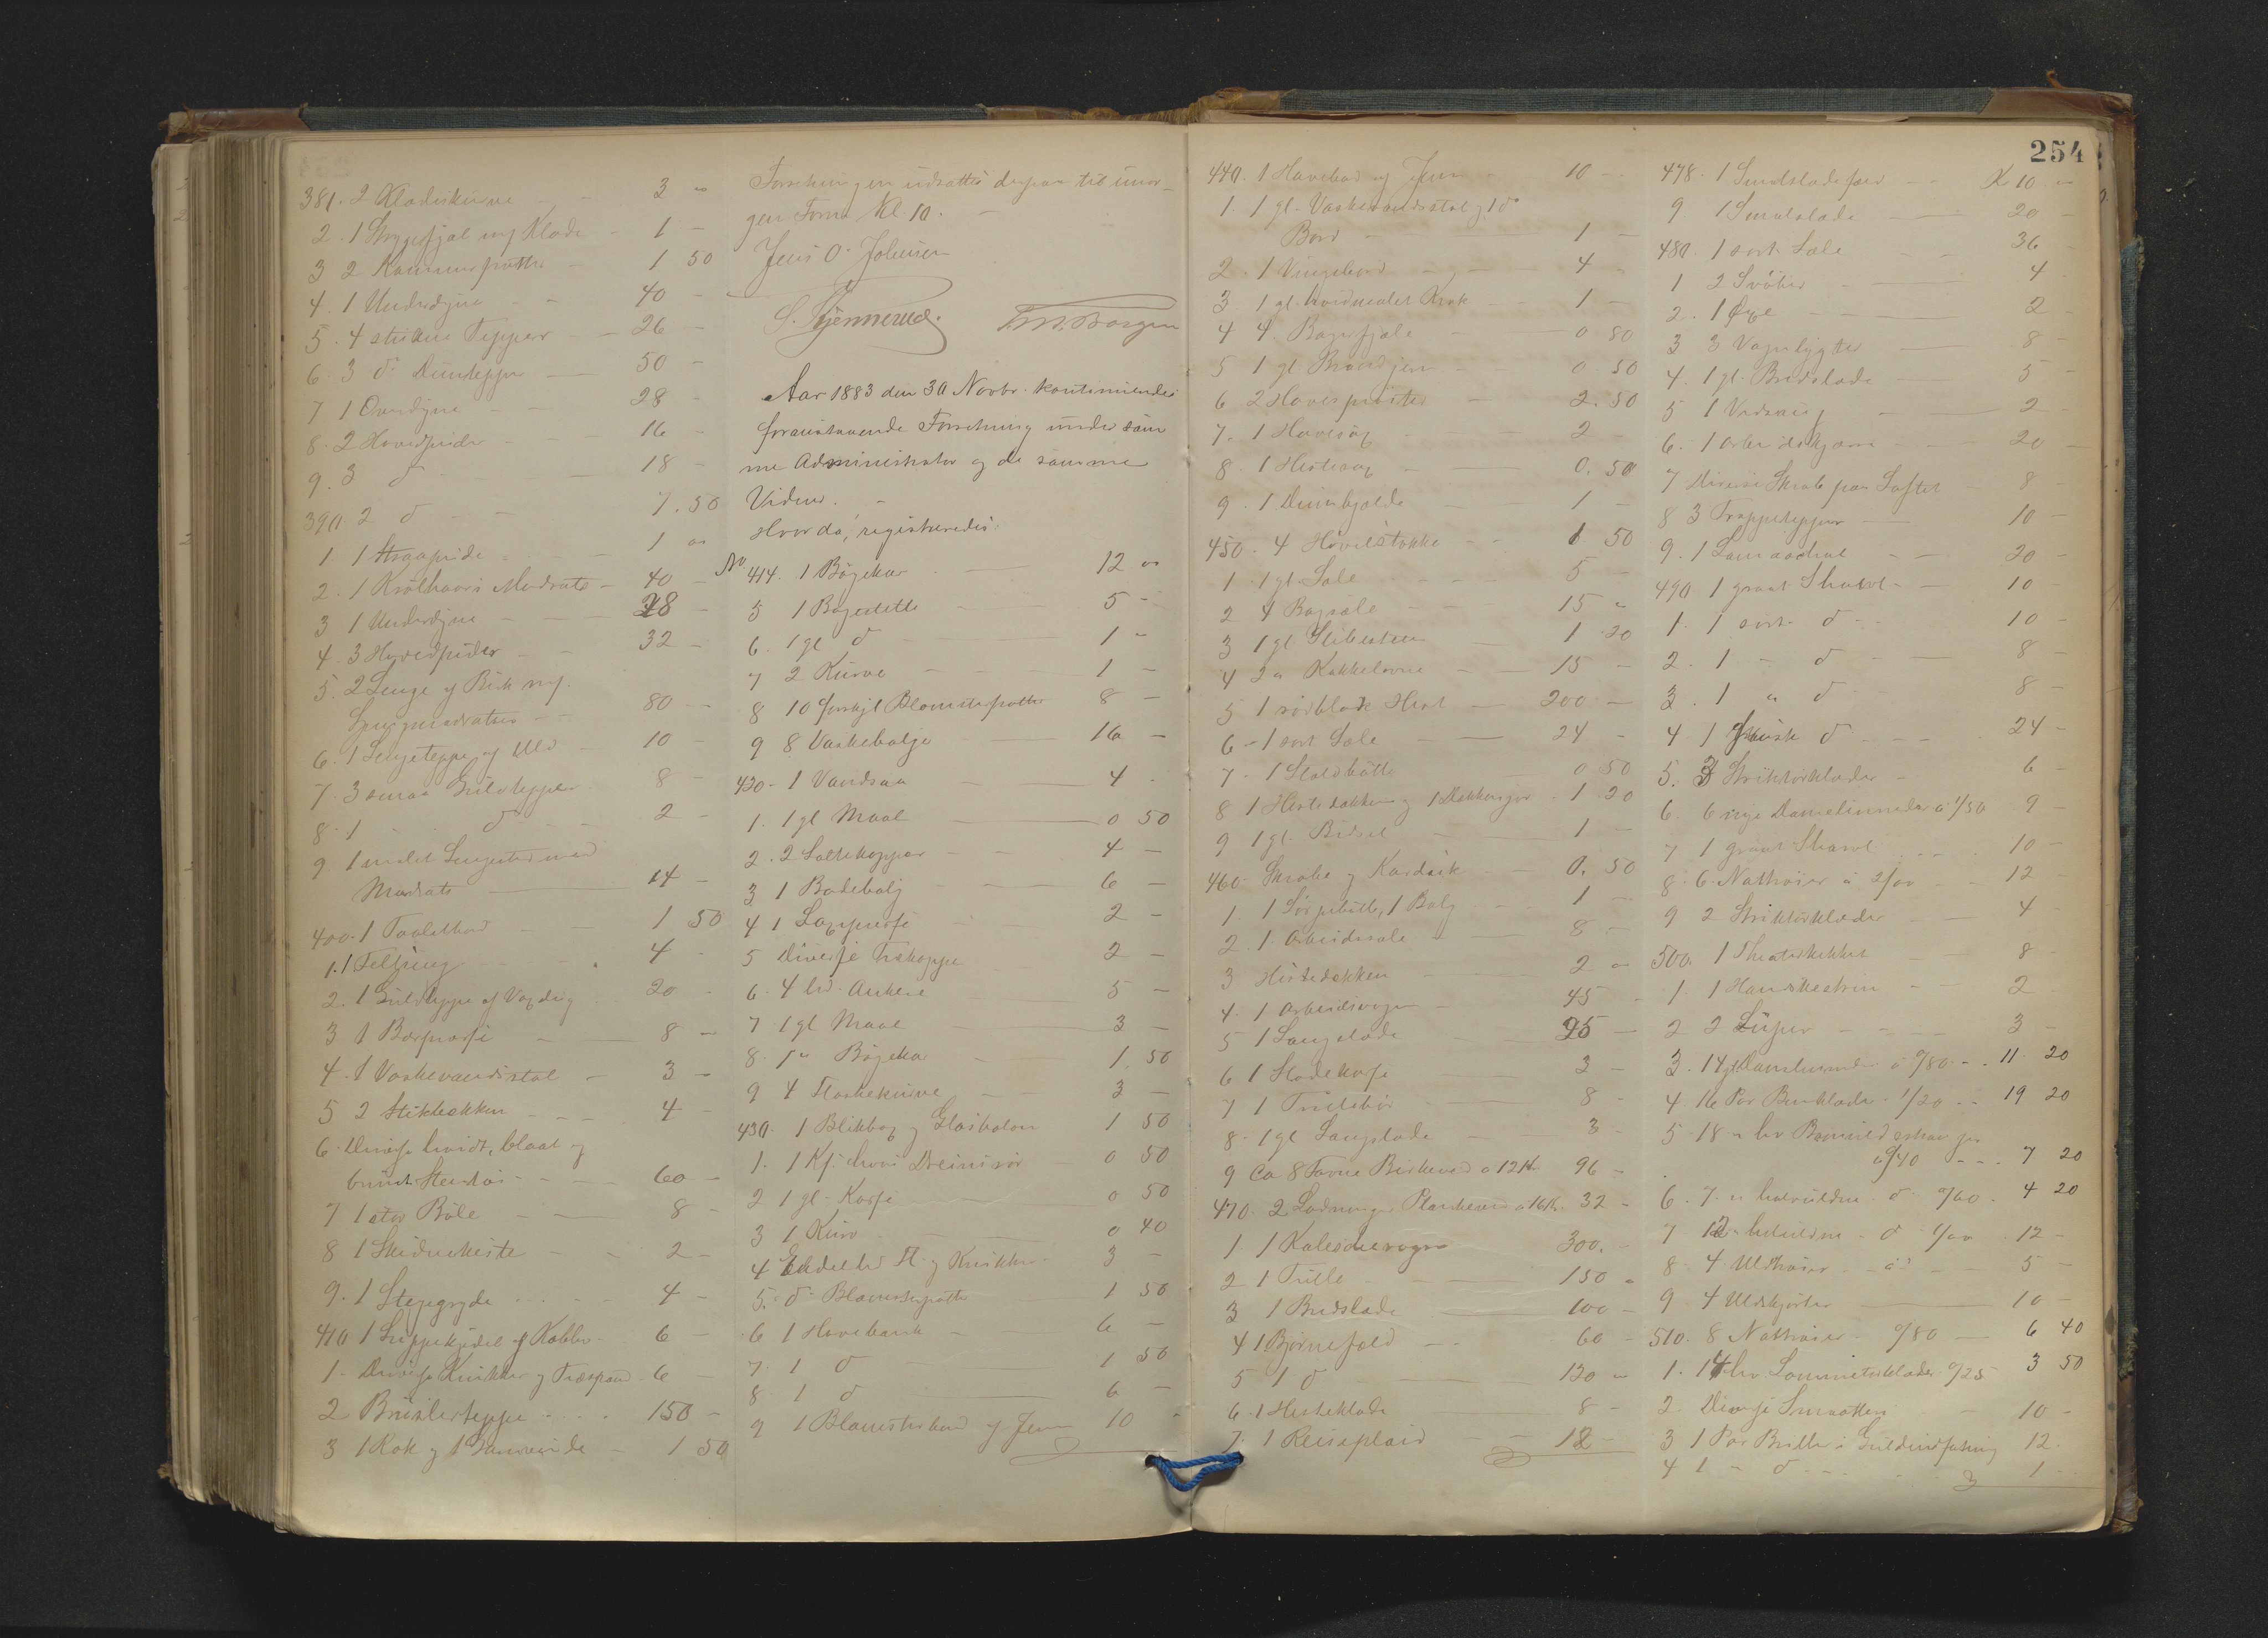 381. 2 Klædeskurve - - 3 "
2. 1 Strygefjæl m/ Klæde - 1 -
3 2 Kammerpotter - 1 50
4. 1 Underdyne - - 40 -
5. 4 strikne Tepper - 26 -
6. 3 do Duntepper - 50 -
7 1 Overdyne - - 28 -
8. 2 Hovedpuder - - 16 -
9. 3 do - - 18 -
390 2 do - - 7. 50
1 1 Straapude - - 1 "
2. 1 Krølhaars Madrats - 40 -
3 1 Underdyne - - 28 -
4. 3 Hovedpuder - - 32 -
5. 2 Senge af Birk m/
Springmadratser - - 80 -
6. 1 Sengeteppe af Uld - 10 -
7. 3 smaa Gulvtepper - 8 -
8. 1 - do - - 2 -
9 1 malet Sengested med
Madrats - 14 -
400. 1 Toiletbord - - 1 50
1. 1 Feltseng - - 4 -
2. 1 Gulvteppe af Voxdug 20 -
3 1 Bærmasse - 8 -
4. 1 Vaskevandsstol - 3 -
5 2 Stikbekken - - 4 -
6. Diverse hvidt, blaat og
brunt Stentøi - - 60 -
7 1 stor Bøle - 8 -
8 1 Skidnekiste - - 2 -
9. 1 Stegegryde - - 4 -
410 1 Suppekjedel af Kobber - 6 -
1. Diverse Krukker og Træspand - 6 -
2 Brüslerteppe - - 150 -
3 1 Rok og 1 Garnvinde - 1 50
Forretningen udsattes derpaa til imor-
gen Form. Kl. 10. -
Jens O. Johnsen
S. Stjennerud. M. Borgen
Aar 1883 den 30 Novbr. kontinueredes
foranstaaende Forretning under sam
me Administrator og de samme
Vidner. -
Hvor da, registreredes:
No 414. 1 Bøgekar - 12 "
5 1 Bøgebøtte - 5 -
6. 1 gl do - 1 "
7 2 Kurve - 1 -
8 10 forskjl Blomsterpotter 8 -
9 8 Vaskebalje - 16 -
420. 1 Vandsaa - 4 -
1. 1 gl Maal - 0 50
2. 2 Saltekopper - - 4 -
3 1 Badebalj - - 6 -
4 1 - 2 -
5 Diverse Trækoppe - 2 -
6. 4 hd. Ankere - 5 -
7 1 gl Maal - 3 -
8. 1 " Bøgekar - 1. 50
9 4 Flaskekurve - - 3 -
430. 1 Blikbox og Glasballon 1 50
1. 1 Kj. hvori Dreinsrør - 0 50
2 1 gl. Kasse - 0 50
3 1 Kurv - 0 40
4 Endel hd Fl. og Krukker - 3 -
5. do Blomsterpotter - 1 50
6 1 Havebænk - 6 -
7. 1 do - 1 50
8 1 do - 6 -
9 1 Blomsterbord af Jern 10 -
254
440. 1 Havebord af Jern - 10 -
1. 1 gl. Vaskevandsstol og 1 do
Bord - 1 -
2. 1 Vingebord - - 4 -
3 1 gl. hvidmalet Krak - 1 -
4 4 Bagefjæle - 0 80
5 1 gl Brændjern - 0 50
6 2 Havesprøiter - 2. 50
7. 1 Havesax - 2 -
8. 1 Hestesax - 0. 50
9. 1 Dumbjelde - 1 -
450. 4 Høvelstokke - - 1 50
1. 1 gl. Sæle - - 5 -
2 4 Bogsæle - 15 "
3 1 gl. Slibesteen - 1 20
4 2 " Kakkelovne - 15 -
5 1 rødblakk Hest - 200 -
6 " 1 sort Sæle - 24 -
7. 1 Staldbøtte - 0 50
8 1 Hestedækken og 1 Dækkengjor 1. 20
9 1 gl. Bidsel - 1 -
460. Skrabe og Kardesk - 0. 50
1. 1 Sørpebøtte, 1 Balg - 1 -
2. 1 Arbeidssæle - 8 -
3 Hestedækken - 2 "
4. 1 Arbeidsvogn - 45 -
5 1 Langslæde - 25 -
6 1 Slædekasse - 3 -
7 1 Trillebør - 8 -
8. 1 gl Langslæde - 3 -
9 Ca 8 Favne Birkeved a 12 Kr 96 -
470. 2 Ladninger Plankeved a 16 Kr. 32 -
1 1 Kalescherogn 300. -
2 1 Trille - 150 "
3 1 Bredslæde - 100 -
4 1 Bjørnefæld - 60 -
5 1 do - 120 "
6. 1 Hesteklæde - 8 -
7. 1 Reiseplaid - 12 -
478. 1 Smalslædefæld - - Kr 10 "
9 1 Smalslæde - 20 -
480. 1 sort Sæle - - 36 -
1 2 Svøber - 4 -
2. 1 Øxe - 2 -
3 3 Vognlygter - 8 -
4. 1 gl. Bredslæde - 5 -
5 1 Vedsaug - 2 -
6. 1 Arbeidskjærre - 20 -
7 Diverse Skrab paa Loftet - 8 -
8 3 Trappetepper - 10 -
9. 1 Lamaschal - - 20 -
490 1 graat Shawl - - 10 -
1. 1 sort do - - 10 -
2. 1 - do - 8 -
3. 1 " do - 8 -
4 1 fransk do - - 24 -
5. 3 Strikkørklæder - 6 -
6. 6 nye Damelinneder a 1/50 9 -
7 1 graat Shawl - - 10 -
8. 6 Nattrøier a 2/00 - 12 -
9 2 Strikkørklæder - 4 -
500. 1 Theaterkikkert - - 8 -
1. 1 Handskeskrin - - 2 -
2 2 Luper - - 3 -
3. 14 gl. Damelinneder a 0/80 - - 11. 20
4. 16 Par Benklæder - 1/20 - - 19 20
5 18 " hv Bomuldsstrømper
a 0/40 - - - 7 20
6. 7 " halvuldne - do 0/60. 4 20
7 12 " heluldne - do 1/00 - 12 -
8. 4 Uldtrøier - - a - 5 -
9 4 Uldskjørter - 10 -
510. 8 Nattrøier - 0/80 - 6 40
1. 14 hv. Lommetørklæder 0/25 3 50
2 Diverse Smaatteri - 10 -
3 1 Par Briller i Guldindfatning 12.
4 1 " do - - - 1 -